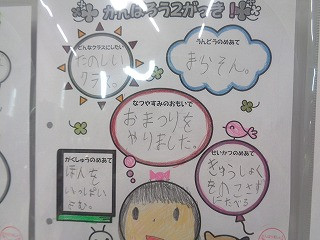 かんばろう2がっき!
どんなクラスにしたい
たのしい
クラス。
うんどうのめあて
まらそん。
なつやすみのおもいで
おまつりを
やりました。
がくしゅうのめあて
ほんを
いっぱい
よむ。
せいかつのめあて
きゅうしょく
をへらさず
にたべる